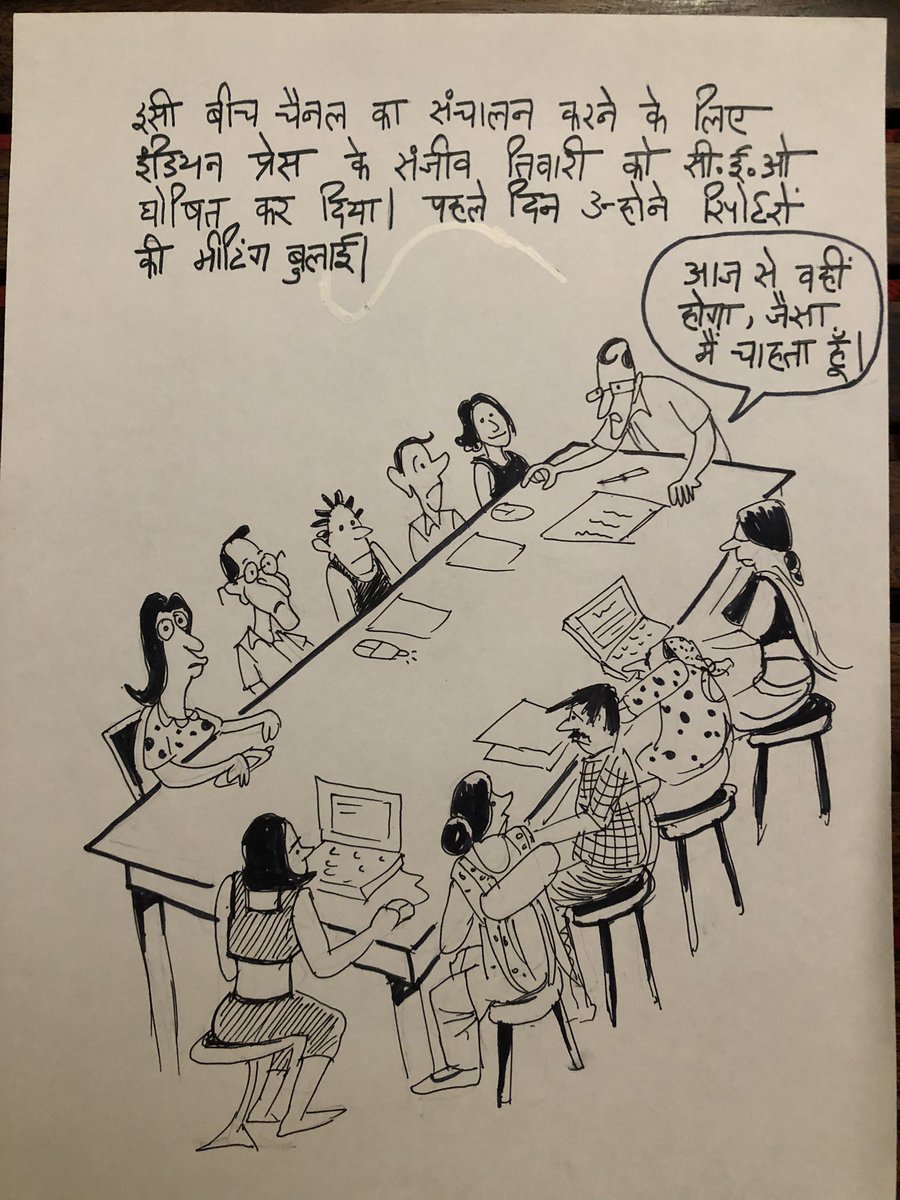 इसी बीच चैनल का संचालन करने के लिए
इंडियन प्रेस के संजीव तिवारी को सी.ई.ओ
घोषित कर दिया। पहले दिन उन्होने रिपोर्टरों
की मीटिंग बुलाई।
आज से वहीं
होगा, जैसा
मैं चाहता हूँ।